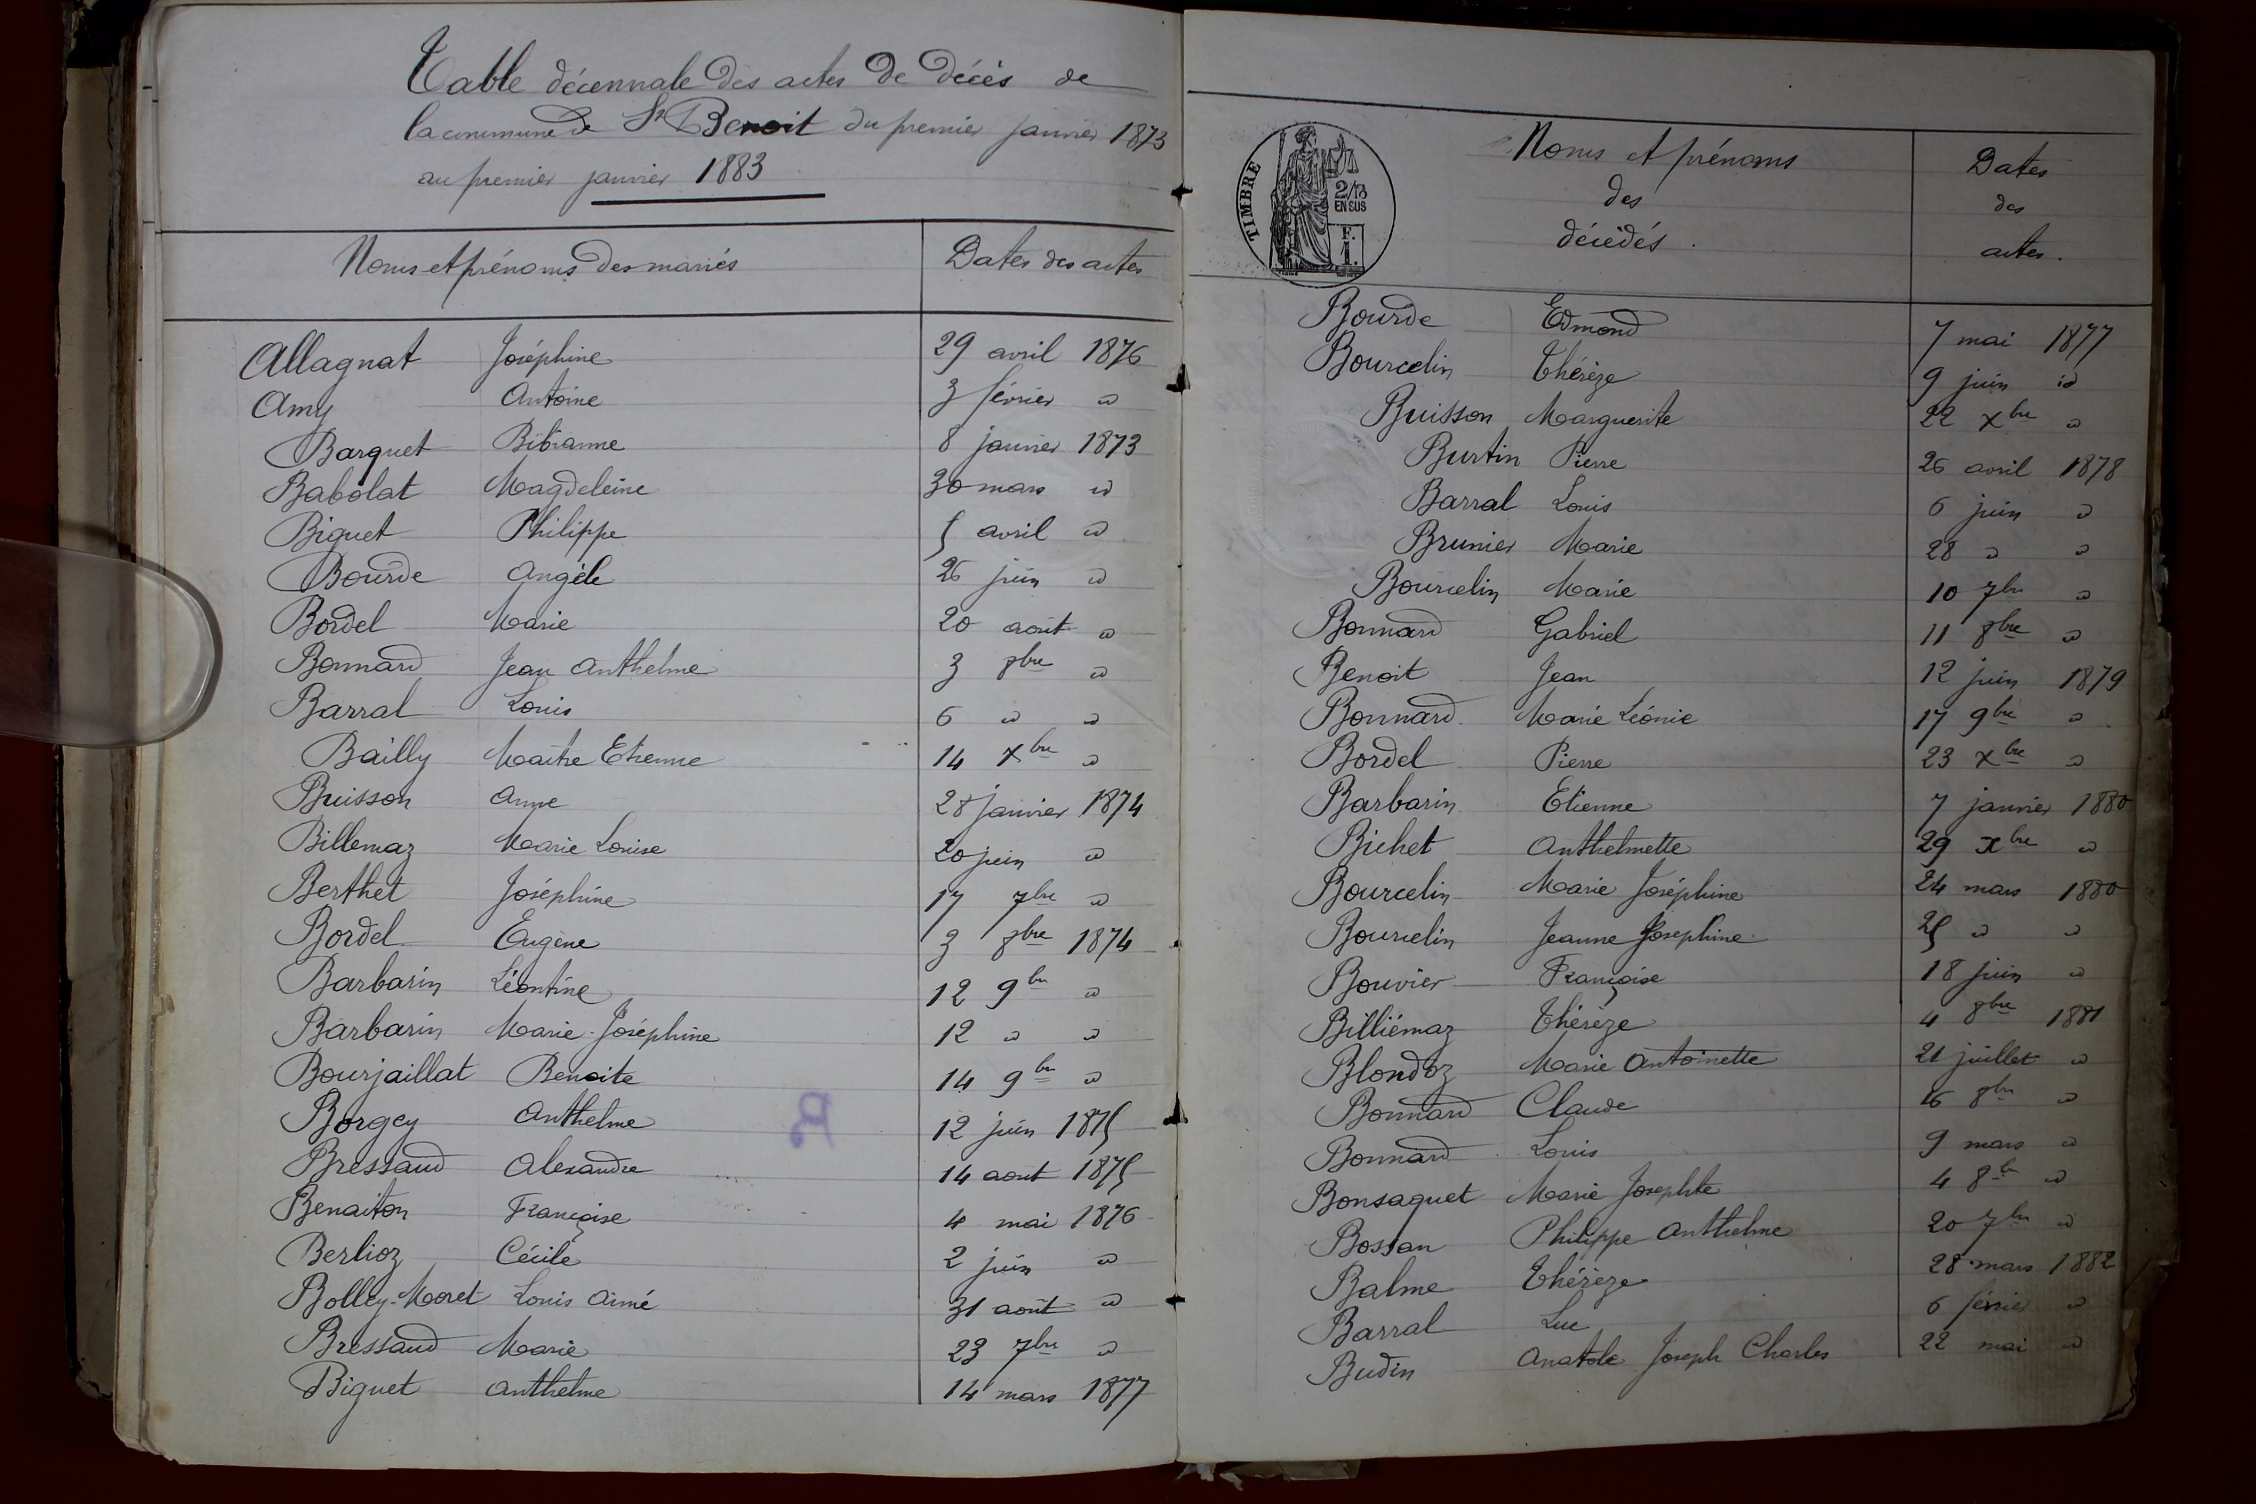 Table décennale des actes de décès de
la commune de St Benoit du premier janvier 1873
au premier janvier 1883
Noms et prénoms des mariés Dates des actes
Allagnat Joséphine 29 avril 1876
Amy Antoine 3 février id
Barquet Bibianne 8 janvier 1873
Babolat Magdeleine 30 mars id
Biguet Philippe 5 avril id
Bourde Angèle 26 juin id
Bordel Marie 20 août id
Bonnard Jean Anthelme 3 8bre id
Barral Louis 6 id id
Bailly Maitre Etienne 14 Xbre id
Buisson Anne 28 janvier 1874
Billemaz Marie Louise 20 juin id
Berthet Joséphine 17 7bre id
Bordel Eugène 3 8bre 1874
Barbarin Léontine 12 9bre id
Barbarin Marie-Joséphine 12 id id
Bourjaillat Benoite 14 9bre id
Borgey Anthelme 12 juin 1875
Bressaud Alexandre 14 aout 1875
Benaiton Françoise 4 mai 1876
Berlioz Cécile 2 juin id
Bolley-Moret Louis Aimé 31 août id
Bressaud Marie 23 7bre id
Biguet Anthelme 14 mars 1877
TIMBRE
2/10
EN SUS
F.
1.
Noms et prénoms
des
décédés.
Dates
des
actes.
Bourde Edmond 7 mai 1877
Bourcelin Thérèze 9 juin id
Buisson Marguerite 22 Xbre id
Burtin Pierre 26 avril 1878
Barral Louis 6 juin id
Brunier Marie 28 id id
Bourcelin Marie 10 7bre id
Bonnard Gabriel 11 8bre id
Benoit Jean 12 juin 1879
Bonnard Marie Léonie 17 9bre id
Bordel Pierre 23 Xbre id
Barbarin Etienne 7 janvier 1880
Bichet Anthelmette 29 Xbre id
Bourcelin Marie Joséphine 24 mars 1880
Bourcelin Jeanne Josephine 25 id id
Bouvier Françoise 18 juin id
Billiémaz Thérèze 4 8bre 1881
Blondoz Marie Antoinette 21 juillet id
Bonnard Claude 16 8bre id
Bonnard Louis 9 mars id
Bonsaquet Marie Josephte 4 8bre id
Bossan Philippe Anthelme 20 7bre id
Balme Thérèze 28 mars 1882
Barral Luc 6 février id
Budin Anatole Joseph Charles 22 mai id